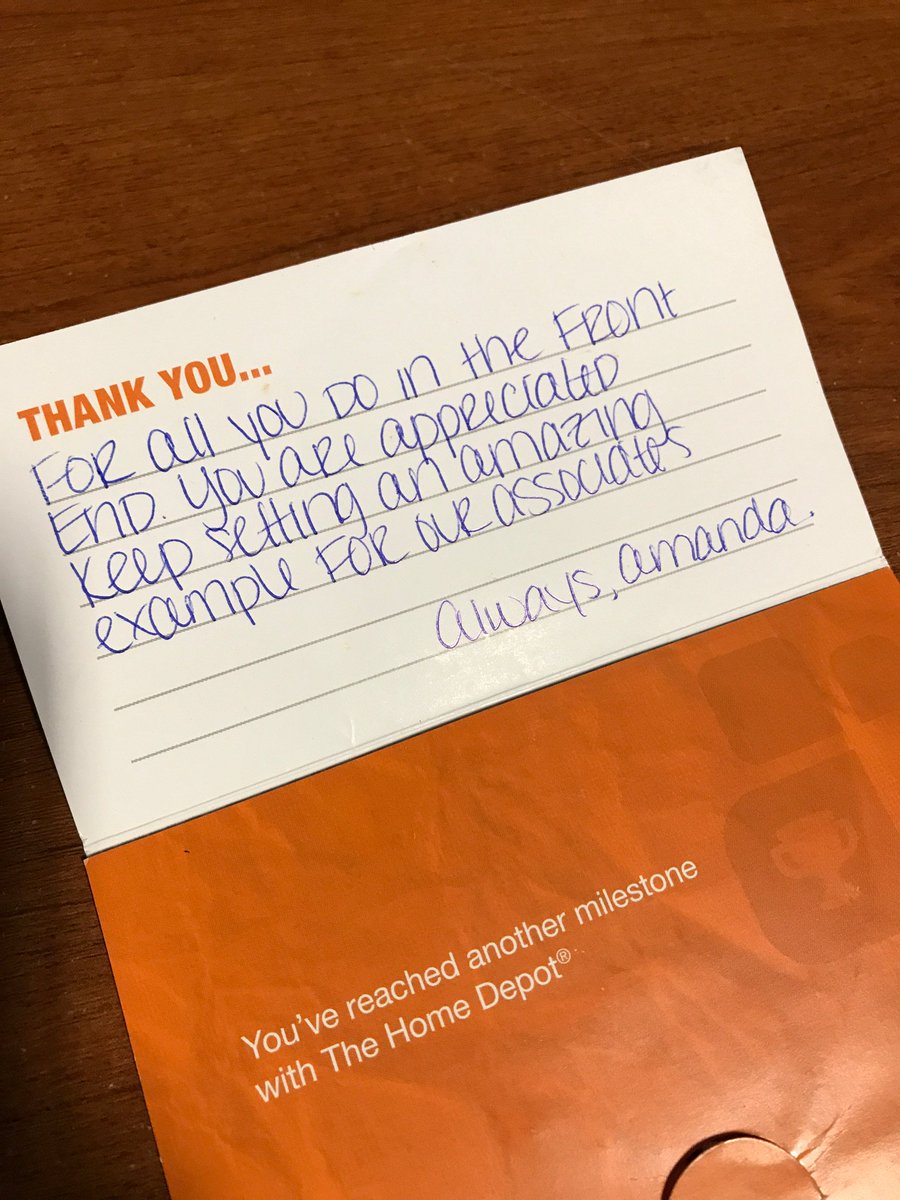 THANK YOU...
FOR all you DO in the FRONT
END. you are appreciated
Keep setting an amazing
example FOR our associates
always, amanda.
You've reached another milestone
with The Home Depot®